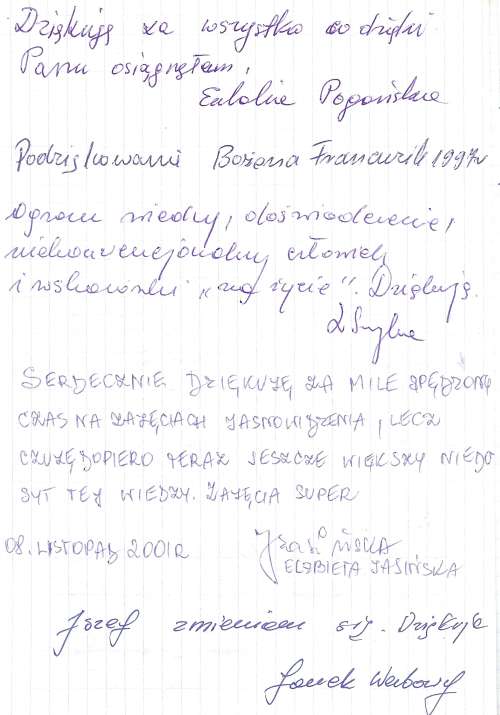 Dziękuję za wszystko co dzięki
Panu osiągnęłam.
Pogońska
Podziękowania Bożena 1997r
Ogrom wiedzy, doświadczenie,
niekonwencjonalny człowiek
i wskazówki „na życie”. Dziękuję.
SERDECZNIE DZIĘKUJĘ ZA MILE SPĘDZONY
CZAS NA ZAJĘCIACH JASNOWIDZENIA, LECZ
CZUJĘ DOPIERO TERAZ JESZCZE WIĘKSZY NIEDO
SYT TEJ WIEDZY. ZAJĘCIA SUPER
08. LISTOPAD 2001R
ELŻBIETA JASIŃSKA
Józef zmieniam się. Dziękuję
Janek